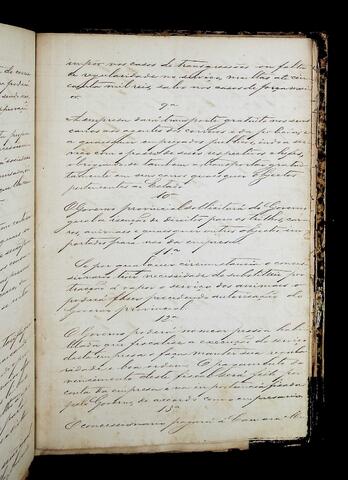 impor nos casos de transgressões ou falta
de regularidade no serviço, multas até cin-
coenta mil reis, salvo nos casos de força mai-
or.
9a
A empresa dará transporte gratuito nos seus
carros aos agentes do correio e da policia, e
a quaesquer empregados publicos, indo em ser-
viço
obriga-se tambem a transportar gratui-
tamente em seus carros quaesquer objectos
pertencentes ao Estado.
10a
O Governo provincial solicitará do Governo
geral a isenção de direitos para os trilhos, car-
ros, animaes e quaesquer outros objectos im-
portados para uso da empresa.
11a
Se por qualquer circumstancia o conces-
sionario tiver necessidade de substituir por
tracção á vapor o serviço dos animaes o
poderá fazer precedendo autorisação do
Governo provincial.
12a
O Governo poderá nomear pessoa habi-
litada que fiscalise a execução do serviço
desta empresa e faça manter sua regula-
ridade e boa ordem. O pagamento do
vencimento deste fiscal será feito por
conta da empresa e na importancia fixada
pelo Governo, de accordo com o empresario.
13a
O concessionario pagará á Camara Mu-